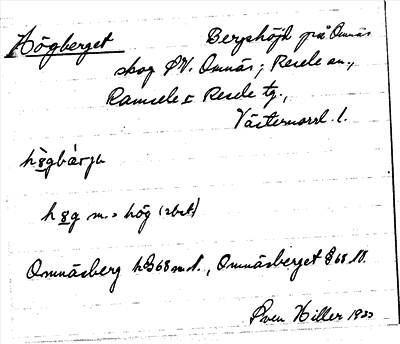 Högberget Bergshöjd på Omnäs
skog SV. Omnäs; Resele sn.,
Ramsele o Resele tg.,
Västernorrl. l.
högbárjə
hög m. = hög (sbst)
Omnäsberg , Omnäsberget
Sven Hiller 1933